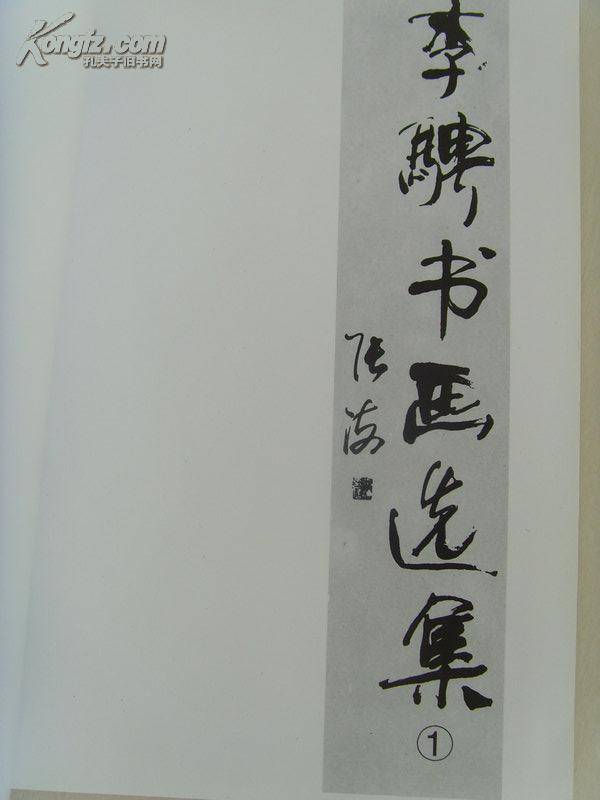 Kongfz.com
孔夫子旧书网
李骋书画选集
①
张海